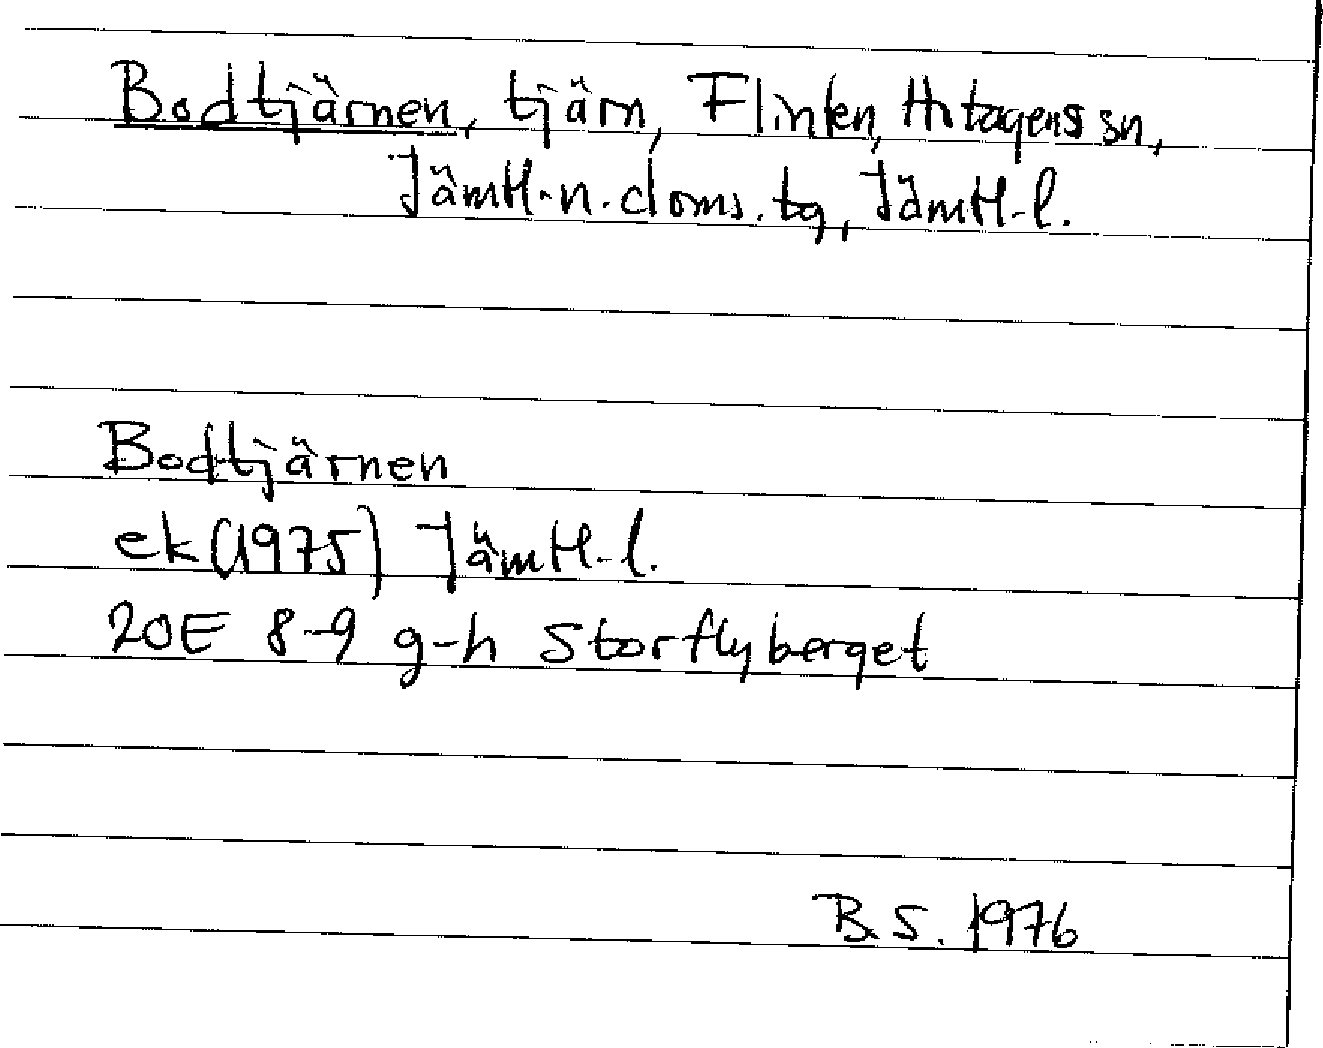 Bodtjärnen, tjärn, Flinten, Hotagens sn,
Jämtl.n.doms.tg, Jämtl.l.
Bodtjärnen
ek (1975) Jämtl.l.
20E 8-9 g-h Storflyberget
B.S. 1976